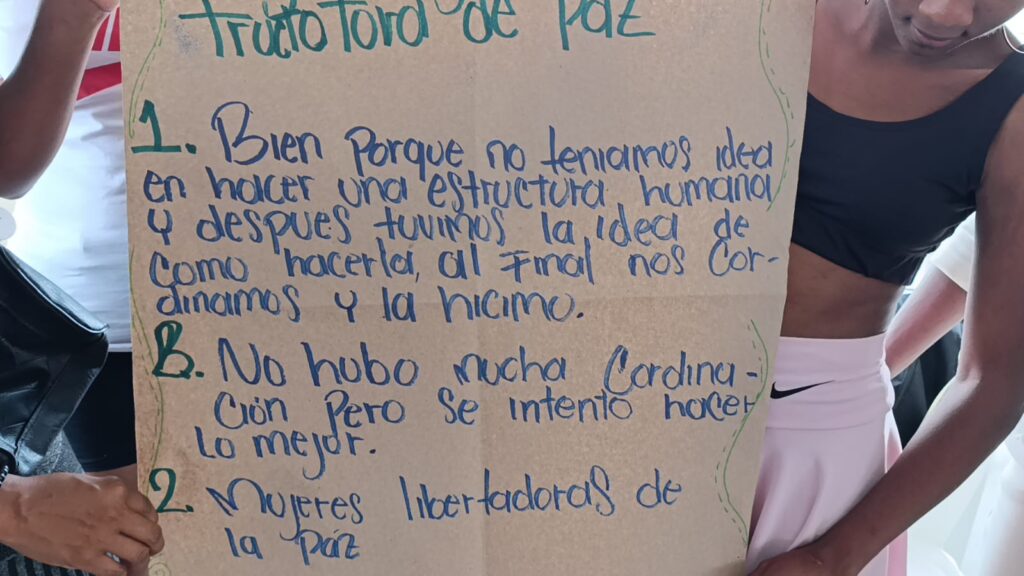 tructoTora de Paz
1. Bien Porque no teniamos idea
en hacer una estructura humana
y despues tuvimos la idea de
como hacerla, al Final nos Cor-
dinamos y la hicimo.
B. No hubo mucha Cordina-
ción Pero se intentó hacer
lo mejor.
2. Mujeres libertadoras de
la páz